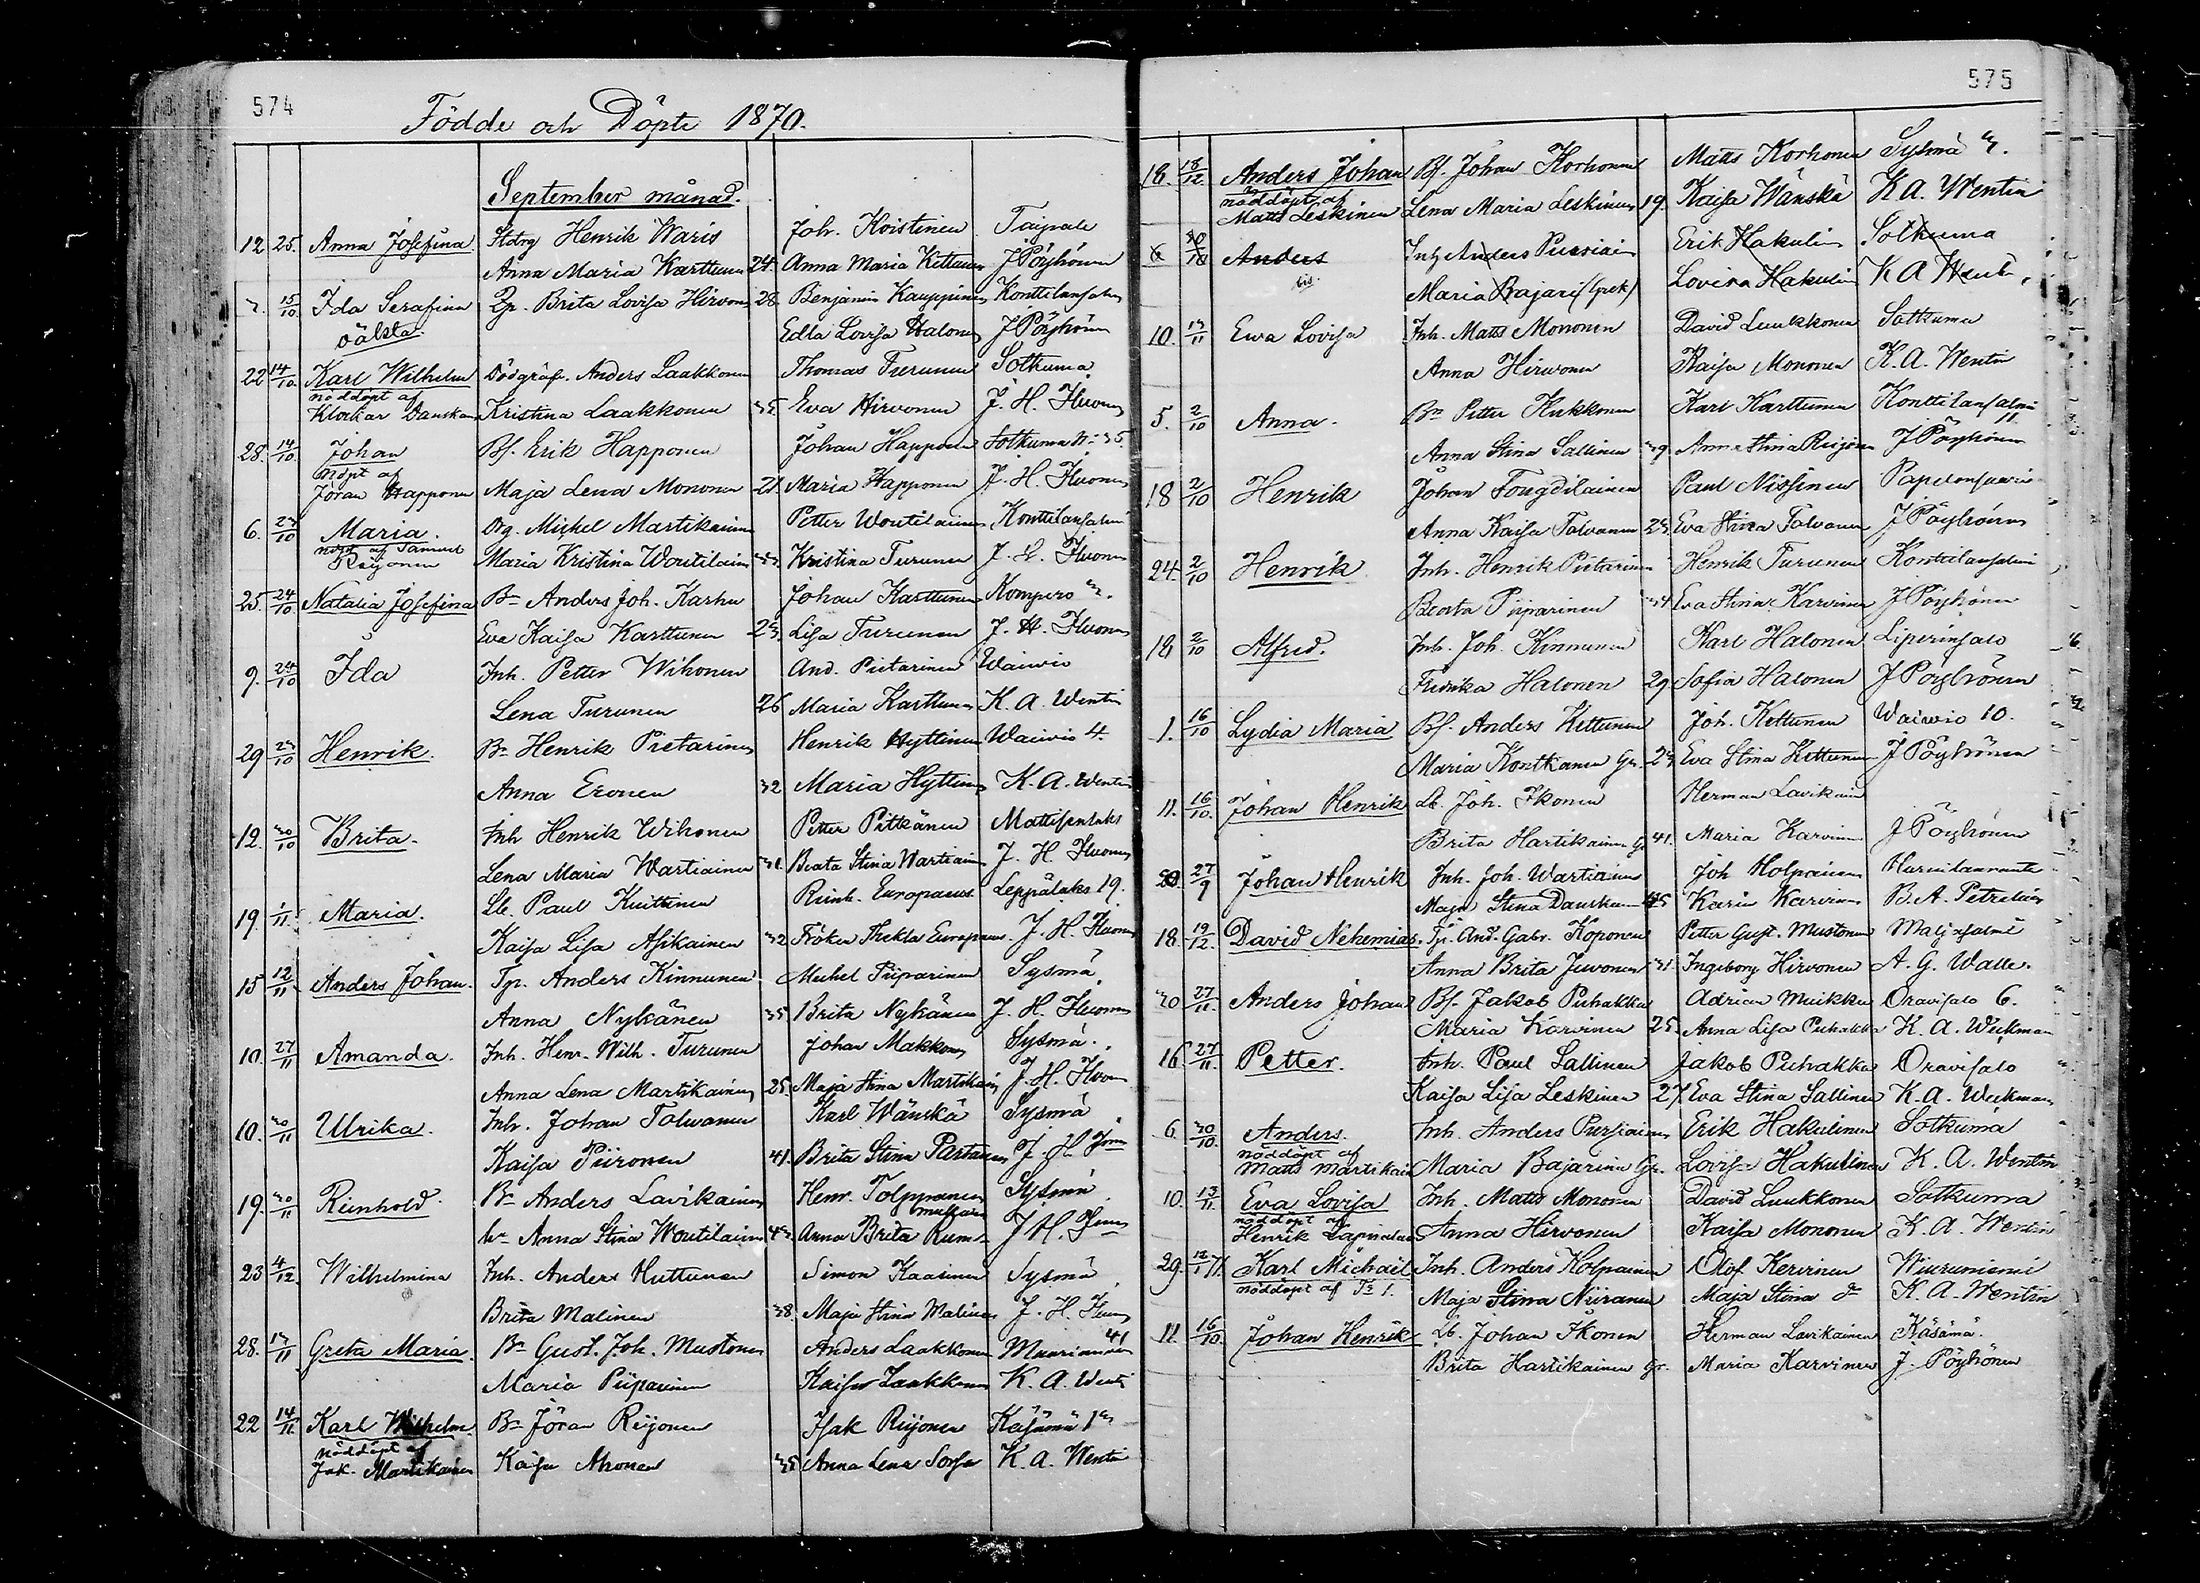 574
Födde och Döpte 1870.
September månad.
12. 25. Anna Josefina Stdrg Henrik Waris Joh. Koistinen Taipale
Anna Maria Karttunen 24. Anna Maria Kettunen J Pöyhönen
15/10 Ida Serafina Pp. Brita Lovisa Hirvonen 28 Benjamin Kauppinen Konttilansalmi
oäkta Edla Lovisa Halonen J Pöyhönen
22 14/10 Karl Wilhelm Dödgräfv. Anders Laakkonen Thomas Turunen Sotkuma
nöddöpt af
Klockar Danska Kristina Laakkonen 35 Eva Hirvonen J. H. Fluoren
28. 14/10. Johan Bf. Erik Happonen Johan Happonen Sotkuma N:o 35
nöpt af
Jöran Happonen Maja Lena Mononen 21. Maria Happonen J. H.
6. 23/10 Maria. Drg. Michel Martikainen Petter Woutilainen Konttilansalmi
nöpt af Samuel
Reijonen Maria Kristina Woutilainen Kristina Turunen J. H.
25. 24/10 Natalia Josefina Bn Anders Joh. Karhu Johan Karttunen Kompero 3.
Eva Kaisa Karttunen 23. Lisa Turunen J. H.
9. 24/10 Ida Inh. Petter Wihonen And. Pietarinen Waivio
Lena Turunen 26 Maria Karttunen K. A. Wentin
29 23/10 Henrik. Bn Henrik Pietarinen Henrik Hyttinen Waivio 4.
Anna Eronen 32 Maria Hyttinen K. A. Wentin
12. 30/10 Brita. Inh Henrik Wihonen Petter Pitkänen Mattisenlaks
Lena Maria Wartiainen 31. Beata Stina Wartiainen J. H.
19. 1/11. Maria. Lb. Paul Kuittinen Reinh. Europaeus Leppälaks 19.
Kaisa Lisa Asikainen 32 Fröken Thekla Europaeus J. H.
15 12/11 Anders Johan. Tp. Anders Kinnunen Michel Piiparinen Sysmä
Anna Nykänen 35 Brita Nykänen J. H.
10. 27/11 Amanda. Inh. Henr. Wilh. Turunen Johan Makkonen Sysmä.
Anna Lena Martikainen 25. Maja Stina Martikainen J. H.
10. 30/11 Ulrika. Inh. Johan Tolwanen Karl Wänskä Sysmä
Kaisa Piironen 41. Brita Stina Partanen J. H.
19. 30/11 Reinhold. Bn Anders Lavikainen Henr. Tolppanen Sysmä
hu Anna Stina Woutilainen 43. Anna Brita J. H.
23 4/12. Wilhelmina Inh. Anders Huttunen Simon Kaasinen Sysmä
Brita Malinen 38. Maja Stina Malinen J. H.
28. 13/11 Greta Maria. Bn Gust. Joh. Mustonen Anders Laakkonen 41
Maria Piiparinen Kaisa Laakkonen K. A. Wentin
22 14/11. Karl Wilhelm. Bn Jöran Reijonen Isak Reijonen Käsämä 13
nöddöpt af
Jak. Martikainen Kaisa Ahonen 35 Anna Lena Sorsa K. A. Wentin
575
18. 18/12 Anders Johan Bf. Johan Korhonen Matts Korhonen Sysmä 3.
nöddöpt af
Matts Leskinen Lena Maria Leskinen 19. Kaisa Wänskä K. A. Wentin
6 30/10 Anders Inh Anders Pursiain Erik Hakulin Sotkuma
Maria Bajari (grek) Lovisa Hakulin K A Went
10. 13/11 Ewa Lovisa Inh. Matts Mononen David Luukkonen Sotkuma
Anna Hirwonen Kaisa Mononen K. A. Wentin
5. 2/10 Anna. Bn Petter Kukkonen Karl Karttunen Konttilansalmi 11
Anna Stina Sallinen 39. Anna Stina Reijonen J Pöyhönen
18 2/10 Henrik Johan Tougdilainen Paul Nissinen Papelonsaari
Anna Kaisa Tolvanen 23. Eva Stina Tolvanen J Pöyhönen
24. 2/10 Henrik Inh. Henrik Pietarinen Henrik Turunen Konttilansalmi
Beata Piiparinen 34 Eva Stina Karvinen J Pöyhönen
18 2/10 Alfred. Inh. Joh. Kinnunen Karl Halonen Liperinsalo
Fredrika Halonen 29. Sofia Halonen J Pöyhönen
1. 16/10 Lydia Maria Bf. Anders Kettunen Joh. Kettunen Waivio 10.
Maria Kontkanen Gr. 23. Eva Stina Kettunen J Pöyhönen
11. 16/10. Johan Henrik Lb. Joh. Ikonen Herman Lavikain
Brita Hartikainen Gr 41. Maria Karvinen J Pöyhönen
30. 27/9 Johan Henrik Inh. Joh. Wartiainen Joh Holpainen Harvilanranta
Maja Stina Danskanen 45 Karin Karvinen B. A. Petrelius
18. 19/12. David Nehemias. Tp. And. Gabr. Koponen Petter Gust. Mustonen Maljasalmi
Anna Brita Juvonen 31 Ingeborg Hirvonen A. G. Walle.
30 27/11. Anders Johan Bf. Jakob Puhakka Adrian Muikku Oravisalo 6.
Maria Karvinen 25. Anna Lisa Puhakka K. A. Weckman
16. 27/11. Petter. Inh. Paul Sallinen Jakob Puhakka Oravisalo
Kaisa Lisa Leskinen 27. Eva Stina Sallinen K. A. Weckman
6. 30/10. Anders. Inh. Anders Pursiainen Erik Hakulinen Sotkuma
nöddöpt af
Matts Martikain Maria Bajarina Gr. Lovisa Hakulinen K. A. Wentin
10. 13/11. Eva Lovisa Inh. Matts Mononen David Luukkonen Sotkuma
nöddöpt af
Henrik Anna Hirvonen Kaisa Mononen K. A. Wentin
29. 12/1 71. Karl Michael Inh. Anders Holpainen Olof Kervinen Wiiniemi
nöddöpt af Maja Stina Niiranen Maja Stina do K. A. Wentin
11. 16/10. Johan Henrik Lb. Johan Ikonen Herman Lavikainen Käsämä.
Brita Hartikainen Gr. Maria Karvinen J. Pöyhönen